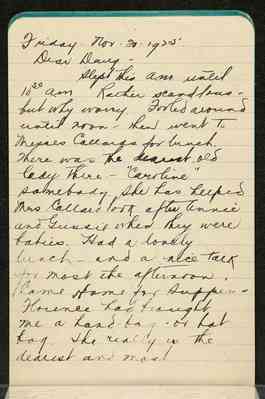 Friday Nov. 20. 1925.
Dear Diary -
Slept this am until
10 30 am Rather scandlous -
but why worry Fooled around
until noon - then went to
Misses Callards for lunch.
There was the dearest old
lady there - "Caroline"
somebody she has helped
Mrs Callard look after Annie
and Gussie when they were
babies. Had a lovely
lunch - and a nice talk
for most the afternoon.
Came Home for supper -
Florence had bought
me a hand bag - or hat
bag. She really is the
dearest and most